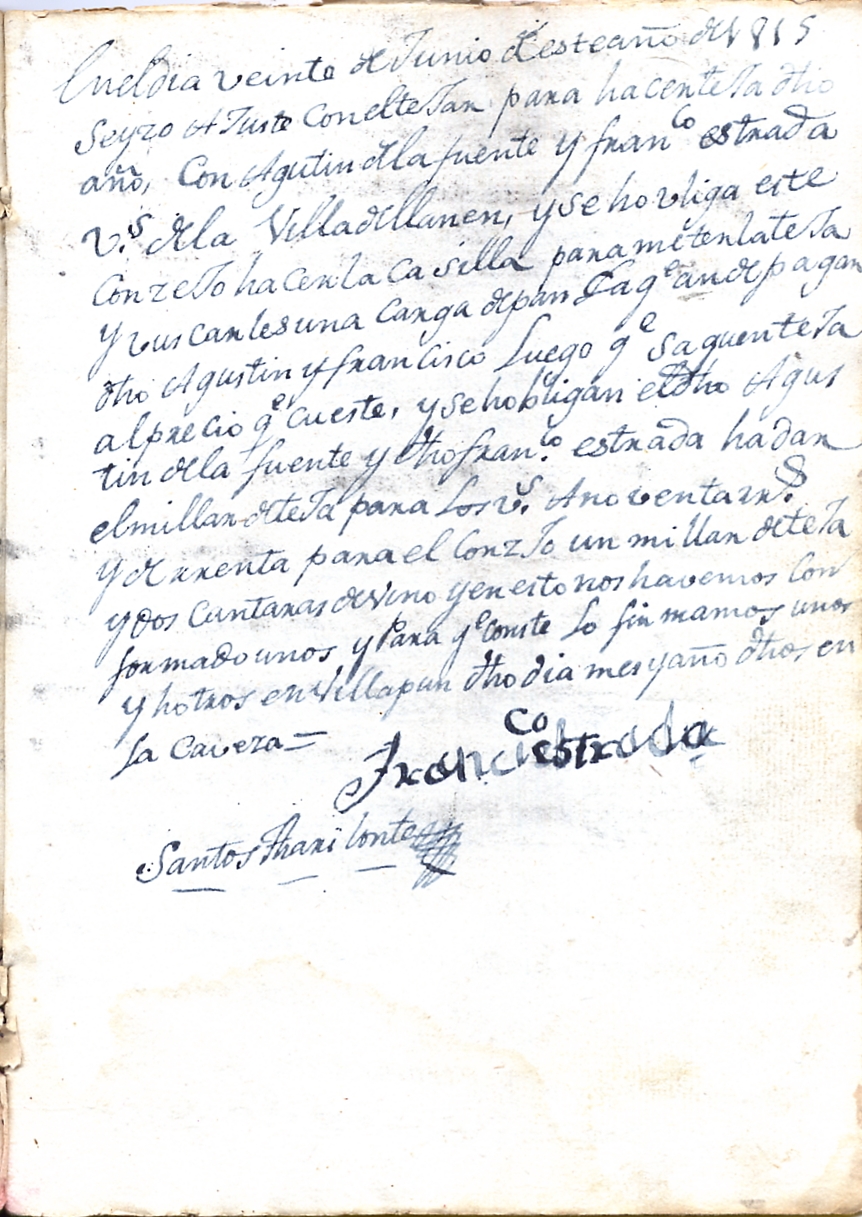 En el dia veinte de Junio de este año de 1815
se yzo AJuste Con el teJar para hacer teJa dho
año, Con Agutin de la fuente y fran.co estrada
v.s de la Villa de llanen, y se hovliga este
Conzejo hacer la Casilla para meter la teJa
y vuscarles una Carga de pan La q.e an de pagar
dho Agustin y francisco Luego q.e Saquen teJa
al precio q.e Cueste, y se hobligan el dho Agus
tin de la fuente y dho fran.co estrada ha dar
el millar de teJa para Los v.s A noventa rr.s
y de rrenta para el Conzejo un millar de teJa
y dos Cantaras de Vino y en esto nos havemos Con
formado unos y Para q.e Conste Lo firmamos unos
y hotros en Villapun dho dia mes y año dhos en
La Caveza=
Franco estrada
Santos